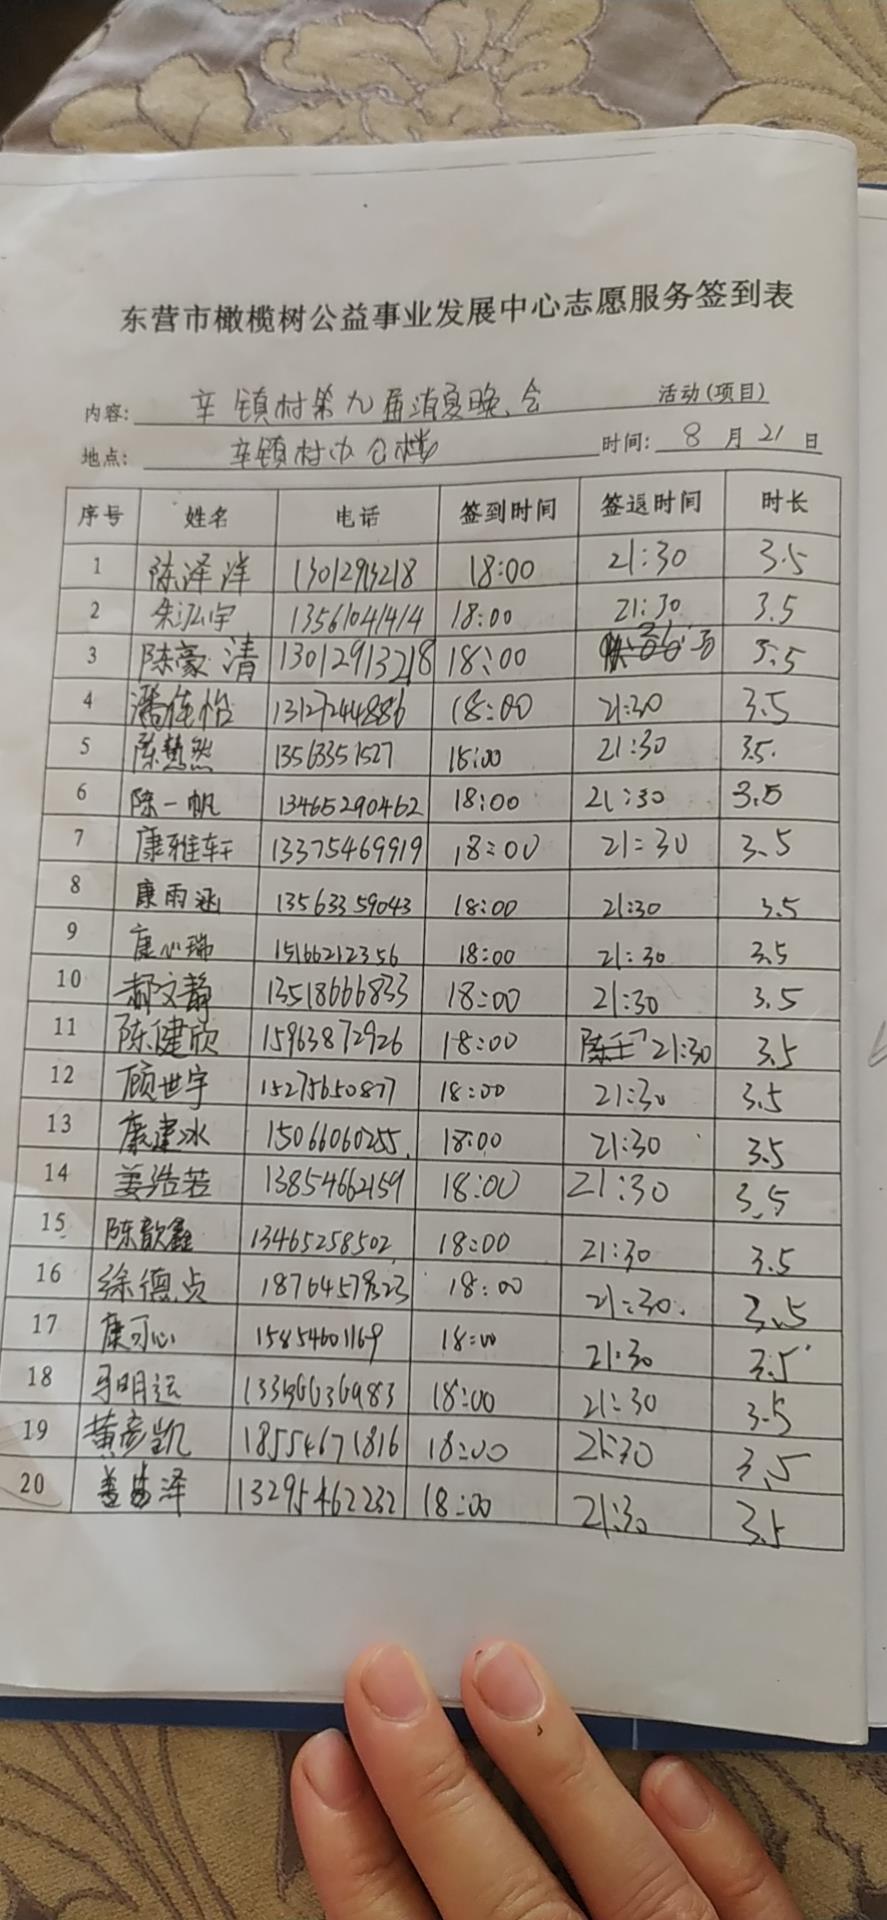 东营市橄榄树公益事业发展中心志愿服务签到表
内容: 辛镇村第九届消夏晚会 活动(项目)
地点: 辛镇村办公楼 时间: 8月21日
序号 姓名 电话 签到时间 签退时间 时长
1 陈泽洋 13012913218 18:00 21:30 3.5
2 朱泓宇 13561041414 18:00 21:30 3.5
3 陈豪清 13012913218 18:00 3.5
4 潘佳怡 13127244886 18:00 21:30 3.5
5 陈慧然 13563351527 18:00 21:30 3.5
6 陈一帆 13465290462 18:00 21:30 3.5
7 康雅轩 13375469919 18:00 21:30 3.5
8 康雨涵 13563359043 18:00 21:30 3.5
9 康心瑞 15166212356 18:00 21:30 3.5
10 郝文静 13518666833 18:00 21:30 3.5
11 陈健欣 15963872926 18:00 21:30 3.5
12 顾世宇 15275650877 18:00 21:30 3.5
13 康建冰 15066060255 18:00 21:30 3.5
14 姜浩若 13854662159 18:00 21:30 3.5
15 陈歆鑫 13465258502 18:00 21:30 3.5
16 徐德贞 18:00 21:30 3.5
17 康可心 15854601169 18:00 21:30 3.5
18 马明运 18:00 21:30 3.5
19 黄彦凯 18554671816 18:00 21:30 3.5
20 13295462232 18:00 21:30 3.5